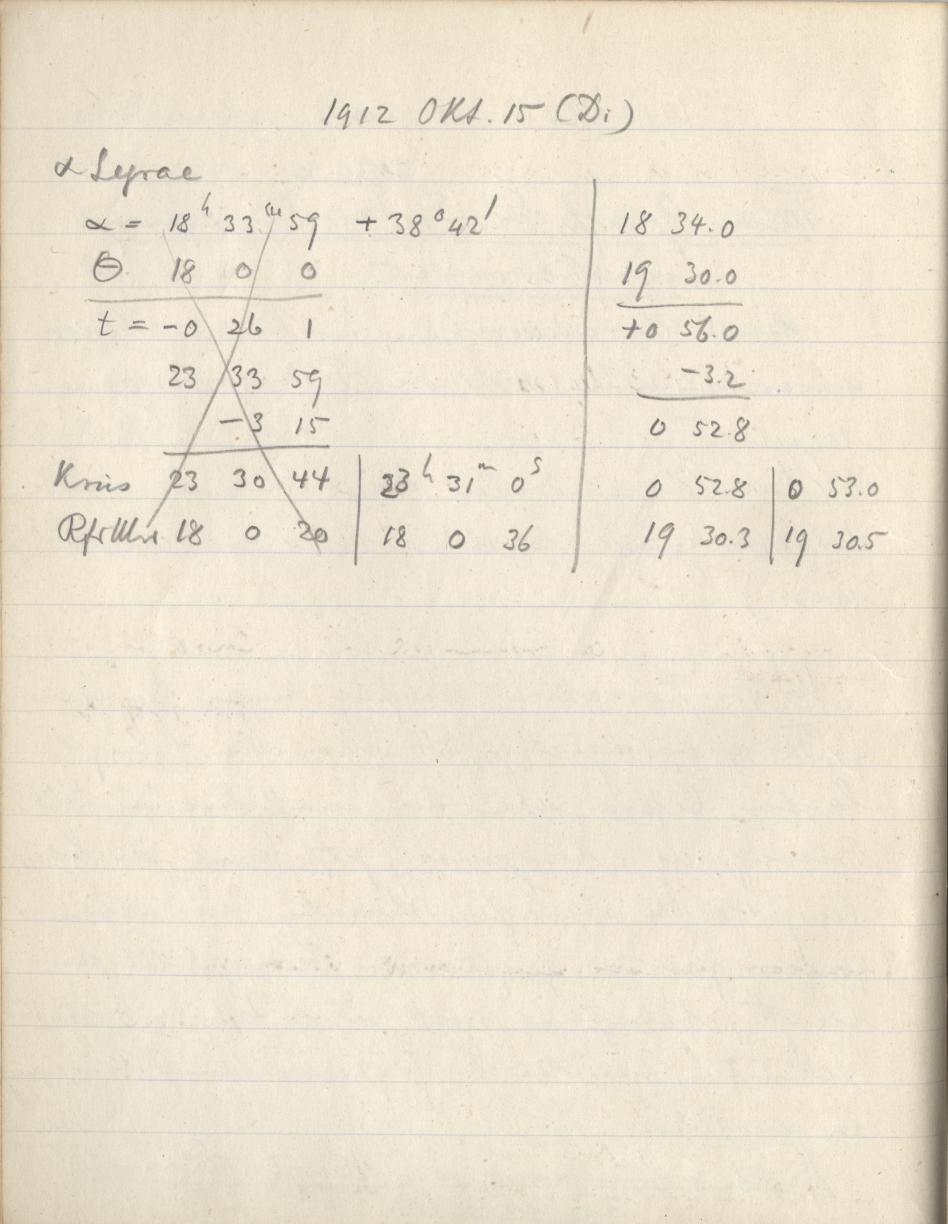 1912 Okt. 15 (Di)
α Lyrae
α = 18ʰ 33ᵐ 59 + 38° 42′
Θ 18 0 0
t = -0 26 1
23 33 59
-3 15
Kreis 23 30 44 | 23ʰ 31ᵐ 0ˢ
18 0 20 | 18 0 36
18 34.0
19 30.0
+0 56.0
-3.2
0 52.8
0 52.8 | 0 53.0
19 30.3 | 19 30.5